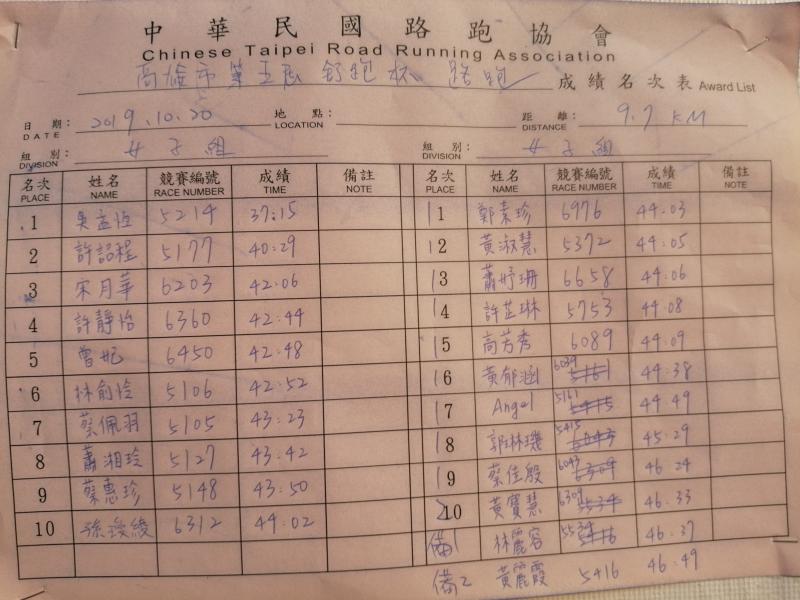 中華民國路跑協會
Chinese Taipei Road Running Association
高雄市第五屆舒跑杯路跑 成績名次表 Award List
日期: DATE 2019.10.20 地點: LOCATION 距離: DISTANCE 9.7 KM
組別: DIVISION 女子組 組別: DIVISION 女子組
名次 PLACE 姓名 NAME 競賽編號 RACE NUMBER 成績 TIME 備註 NOTE 名次 PLACE 姓名 NAME 競賽編號 RACE NUMBER 成績 TIME 備註 NOTE
1 吳孟恆 5214 37:15 11 鄭素珍 6976 44:03
2 許韶程 5177 40:29 12 黃淑慧 5372 44:05
3 宋月華 6203 42:06 13 蕭妤珊 6658 44:06
4 許靜怡 6360 42:44 14 許芷琳 5753 44:08
5 曾妃 6450 42:48 15 高芳秀 6089 44:09
6 林俞伶 5106 42:52 16 黃郁涵 6039 5161 44:38
7 蔡佩羽 5105 43:23 17 Angel 5161 5415 44:49
8 蕭湘玲 5127 43:42 18 郭林璣 5415 6043 45:29
9 蔡惠珍 5148 43:50 19 蔡佳殷 6043 6309 46:24
10 6312 44:02 20 黃寶慧 6309 5534 46:33
備1 林麗容 5534 5416 46:37
備2 黃麗霞 5416 46:49